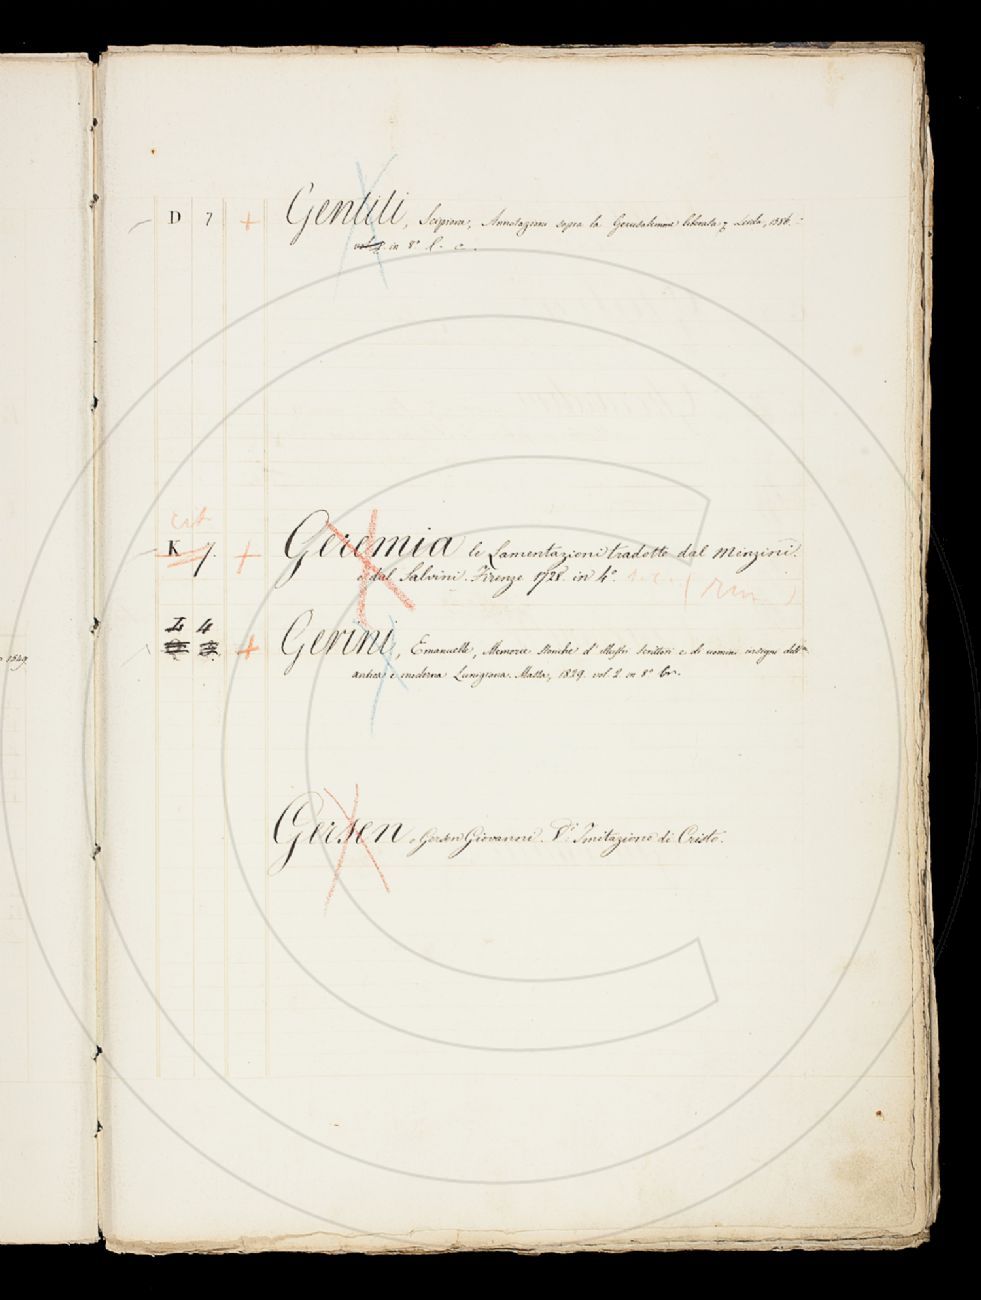 D 7 + Gentili, Scipione, Annotazioni sopra la Gerusalemme liberata; Leida, 1586.
in 8° l. c.
K 7. + Geremia le Lamentazioni tradotte dal Minzini
e dal Salvini. Firenze 1728. in 4°.
L 4
+ Gerini, Emanuelle, Memorie Storiche d'illustri scrittori e di uomini insigni dell'
antica e moderna Lunigiana. Massa, 1829. vol. 2 in 8° br.
1849
Gersen o Gersen Giovanni. Vi Imitazione di Cristo.